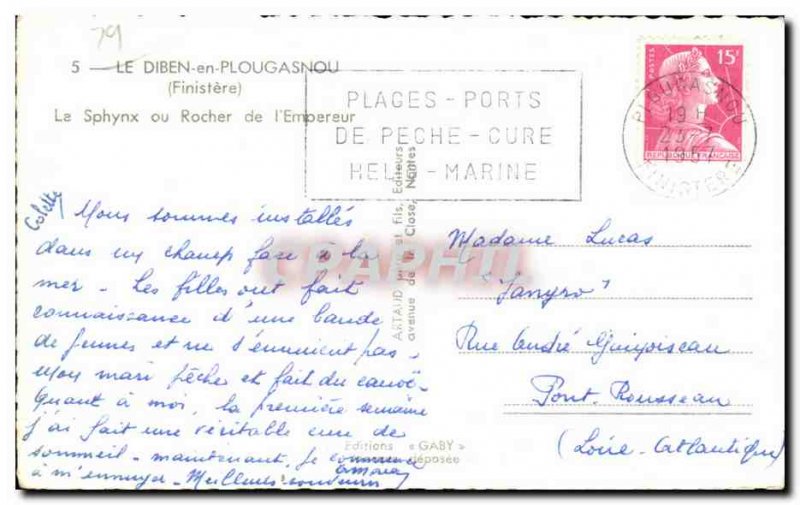 79
5 — LE DIBEN-en-PLOUGASNOU
(Finistère)
Le Sphynx ou Rocher de l'Empereur
PLAGES - PORTS
DE PECHE - CURE
HELI - MARINE
POSTES
15F
REPUBLIQUE FRANÇAISE
PLOUGASNOU
19 H
1957
FINISTERE
Colette
Nous sommes installés
dans un champ face à la
mer - Les filles ont fait
connaissance d'une bande
de jeunes et ne s'ennuient pas -
Mon mari pêche et fait du canoë -
Quant à moi, la première semaine
j'ai fait une véritable cure de
sommeil - maintenant, je commence
à m'ennuyer - Meilleurs souvenirs
ARTAUD et fils, Editeurs
avenue de la Close, Nantes
Editions « GABY »
déposée
CPAPHIL
Madame Lucas
"
Rue André
Pont-Rousseau
(Loire-Atlantique)